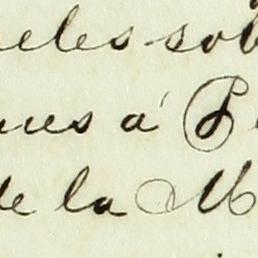 eles sob
nes á P
de la M